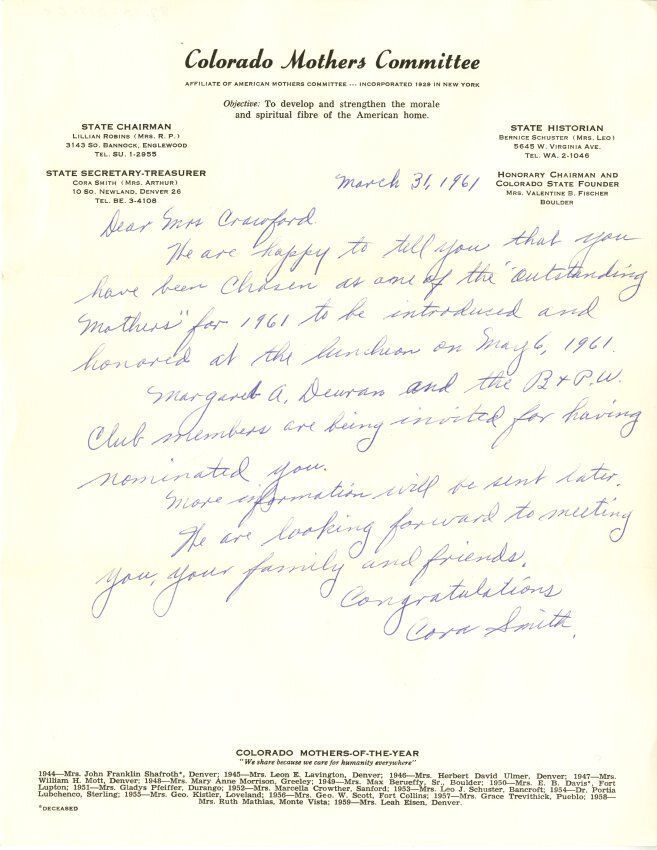 Colorado Mothers Committee
AFFILIATE OF AMERICAN MOTHERS COMMITTEE --- INCORPORATED 1929 IN NEW YORK
Objective: To develop and strengthen the morale
and spiritual fibre of the American home.
STATE CHAIRMAN
LILLIAN ROBINS (MRS. R. P.)
3143 SO. BANNOCK, ENGLEWOOD
TEL. SU. 1-2955
STATE SECRETARY-TREASURER
CORA SMITH (MRS. ARTHUR)
10 SO. NEWLAND, DENVER 26
TEL. BE. 3-4108
STATE HISTORIAN
BERNICE SCHUSTER (MRS. LEO)
5645 W. VIRGINIA AVE.
TEL. WA. 2-1046
HONORARY CHAIRMAN AND
COLORADO STATE FOUNDER
MRS. VALENTINE B. FISCHER
BOULDER
March 31, 1961
Dear Mrs Crawford.
We are happy to tell you that you
have been chosen as one of the "Outstanding
Mothers" for 1961 to be introduced and
honored at the luncheon on May 6, 1961
Margaret A. and the B & P.W.
Club members are being invited for having
nominated you.
More information will be sent later.
We are looking forward to meeting
you, your family and friends.
Congratulations
Cora Smith.
COLORADO MOTHERS-OF-THE-YEAR
"We share because we care for humanity everywhere"
1944—Mrs. John Franklin Shafroth*, Denver; 1945—Mrs. Leon E. Lavington, Denver; 1946—Mrs. Herbert David Ulmer, Denver; 1947—Mrs.
William H. Mott, Denver; 1948—Mrs. Mary Anne Morrison, Greeley; 1949—Mrs. Max Berueffy, Sr., Boulder; 1950—Mrs. E. B. Davis*, Fort
Lupton; 1951—Mrs. Gladys Pfeiffer, Durango; 1952—Mrs. Marcella Crowther, Sanford; 1953—Mrs. Leo J. Schuster, Bancroft; 1954—Dr. Portia
Lubchenco, Sterling; 1955—Mrs. Geo. Kistler, Loveland; 1956—Mrs. Geo. W. Scott, Fort Collins; 1957—Mrs. Grace Trevithick, Pueblo; 1958—
Mrs. Ruth Mathias, Monte Vista; 1959—Mrs. Leah Eisen, Denver.
*DECEASED